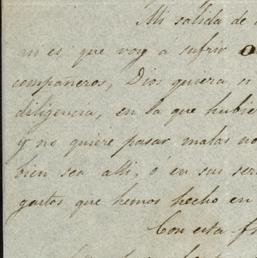 Mi salida de
mes que voy a sufrir
compañeros, Dios quiera
diligencia, en la que hubie
y no quiere pasar malas no
bien sea alli, ó en su ser
gastos que hemos hecho en
Con esta f